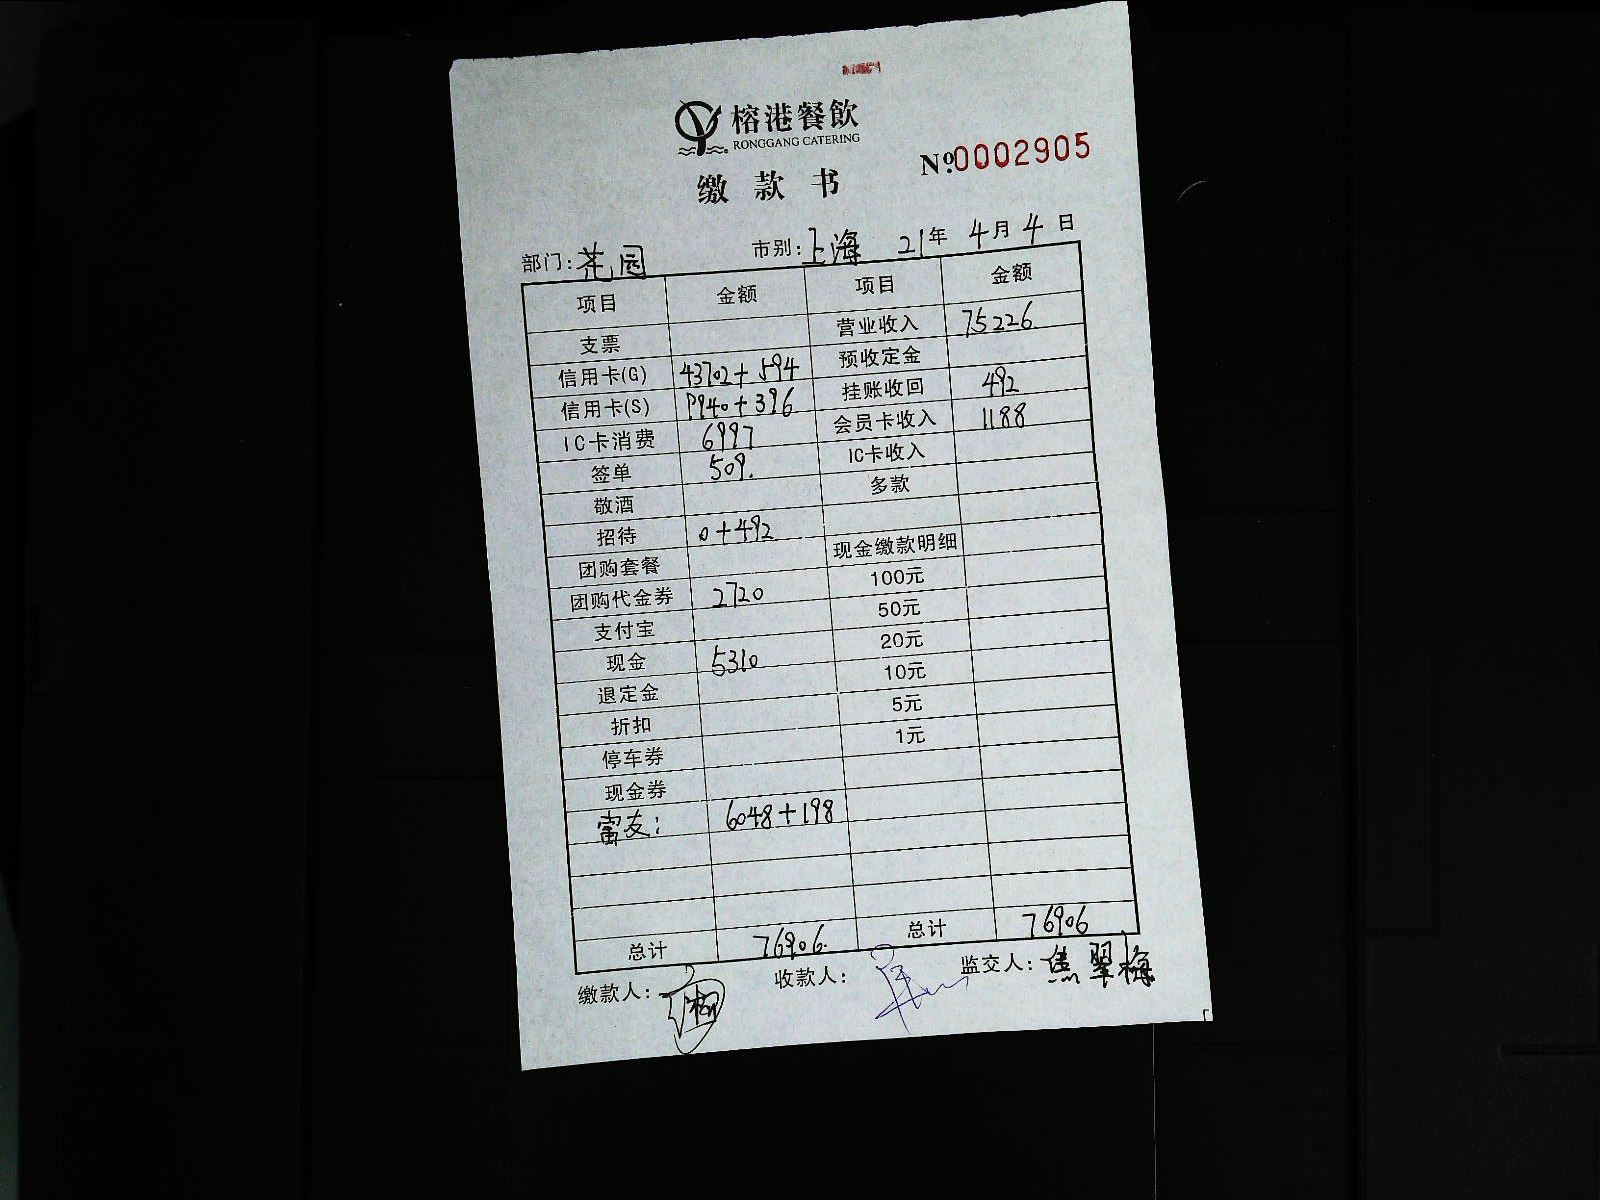 榕港餐飲
RONGGANG CATERING
缴款书
Nº.0002905
部门:花园 市别:上海 21年 4月 4日
项目 金额 项目 金额
支票 营业收入 75226.
信用卡(G) 43702+594 预收定金
信用卡(S) 9940+396 挂账收回 492
IC卡消费 6997 会员卡收入 1188
签单 509. IC卡收入
敬酒 多款
招待 0+492
团购套餐 现金缴款明细
团购代金券 2720 100元
支付宝 50元
现金 5310 20元
退定金 10元
折扣 5元
停车券 1元
现金券
6048+198
总计 76906. 总计 76906
缴款人: 收款人: 监交人:焦翠梅